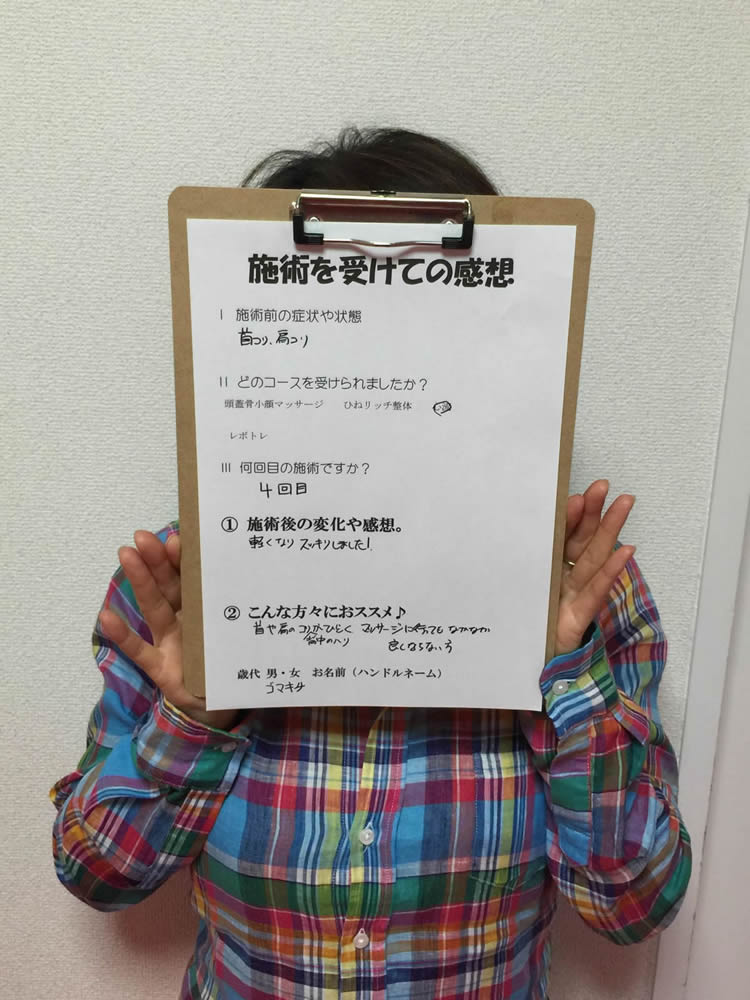 施術を受けての感想
I 施術前の症状や状態
首コリ、肩コリ
II どのコースを受けられましたか？
頭蓋骨小顔マッサージ ひねリッチ整体
レボトレ
III 何回目の施術ですか？
4回目
① 施術後の変化や感想。
軽くなり スッキリしました!
② こんな方々におススメ♪
首や肩のコリがひどく マッサージに行ってもなかなか
背中のハリ 良くならない方
歳代 男・女 お名前（ハンドルネーム）
ゴマキチ